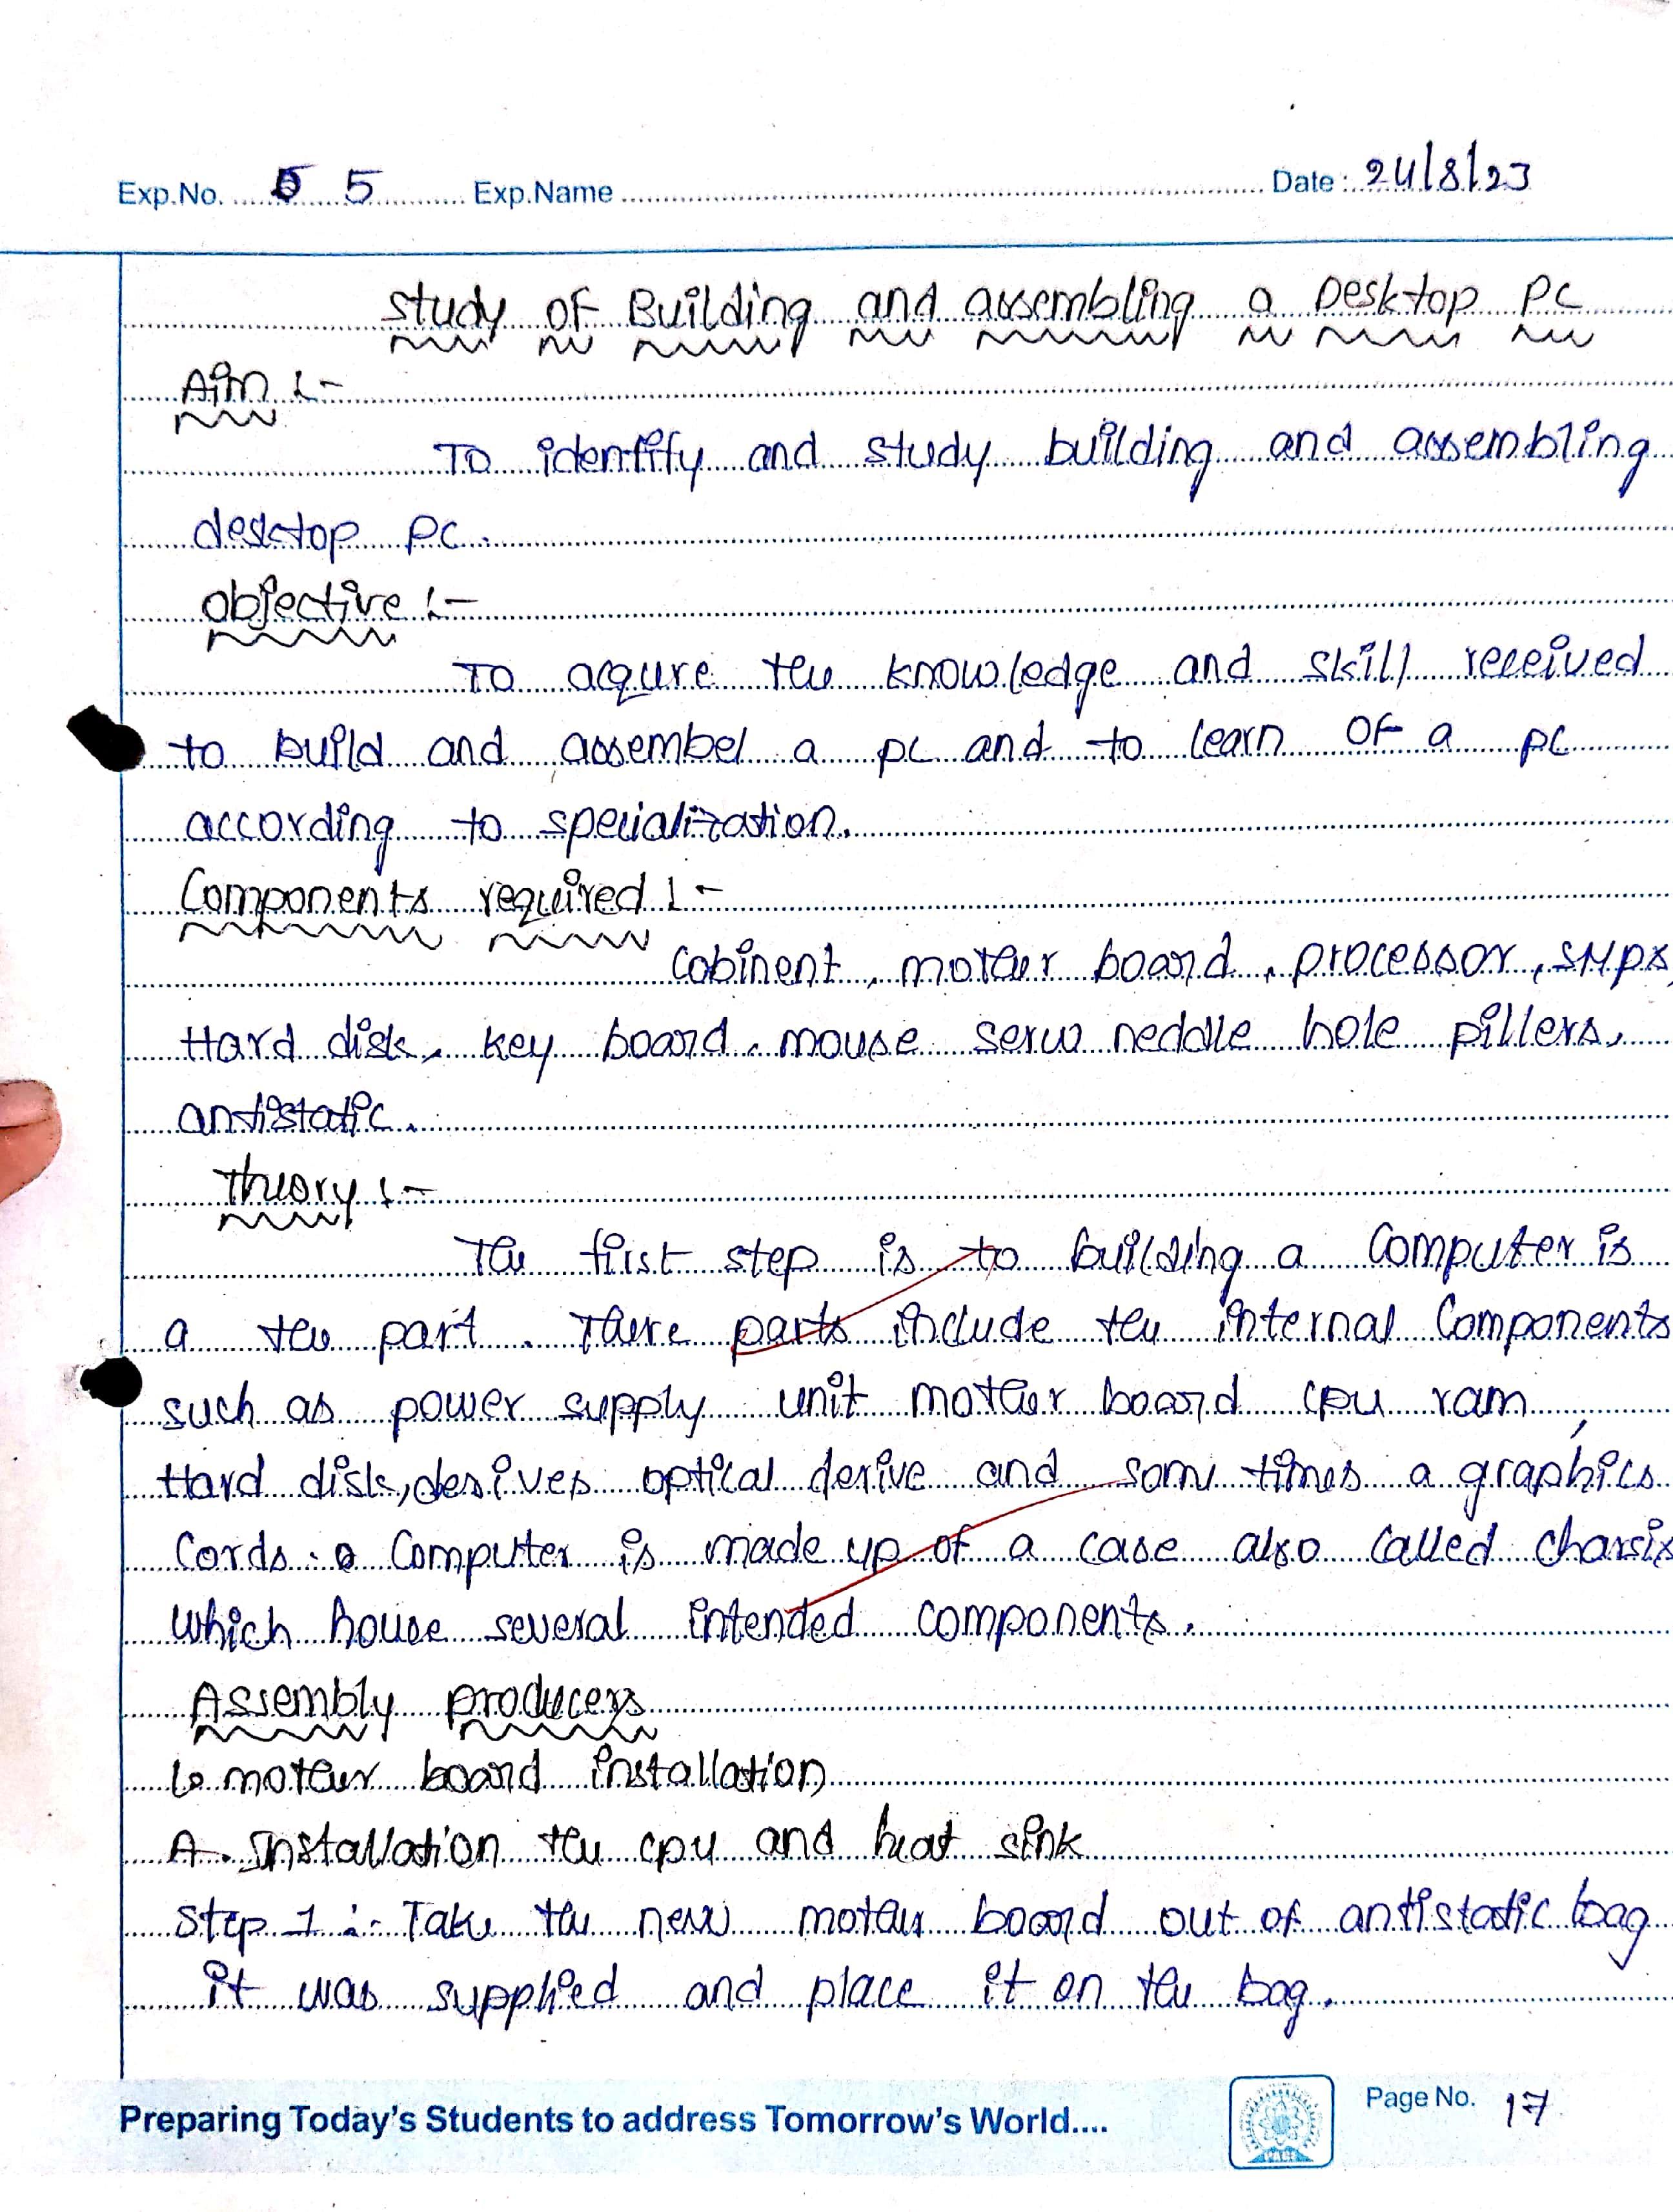 Exp.No. 5 5 Exp.Name Date: 24/8/23
study of Building and assembling a Desktop PC
Aim :-
To identify and study building and assembling
desktop PC.
objective :-
To acqure the knowledge and skill received
to build and assembel a pc and to learn of a pc
according to specialization.
Components required :-
Cobinent, mother board, processor, SMPS,
Hard disk, key board, mouse serw neddle hole pillers,
antistatic.
Theory :-
The first step is to building a Computer is
a the part. There parts include the internal Components
such as power supply unit mother board cpu ram,
Hard disk, desives optical derive and some times a graphics
Cords. a Computer is made up of a case also called charsis
which house several intended components.
Assembly producers
1. mother board installation
A. Installation the cpu and heat sink
Step 1 :- Take the new mother board out of antistatic bag
it was supplied and place it on the bag.
Preparing Today's Students to address Tomorrow's World....
Page No. 17